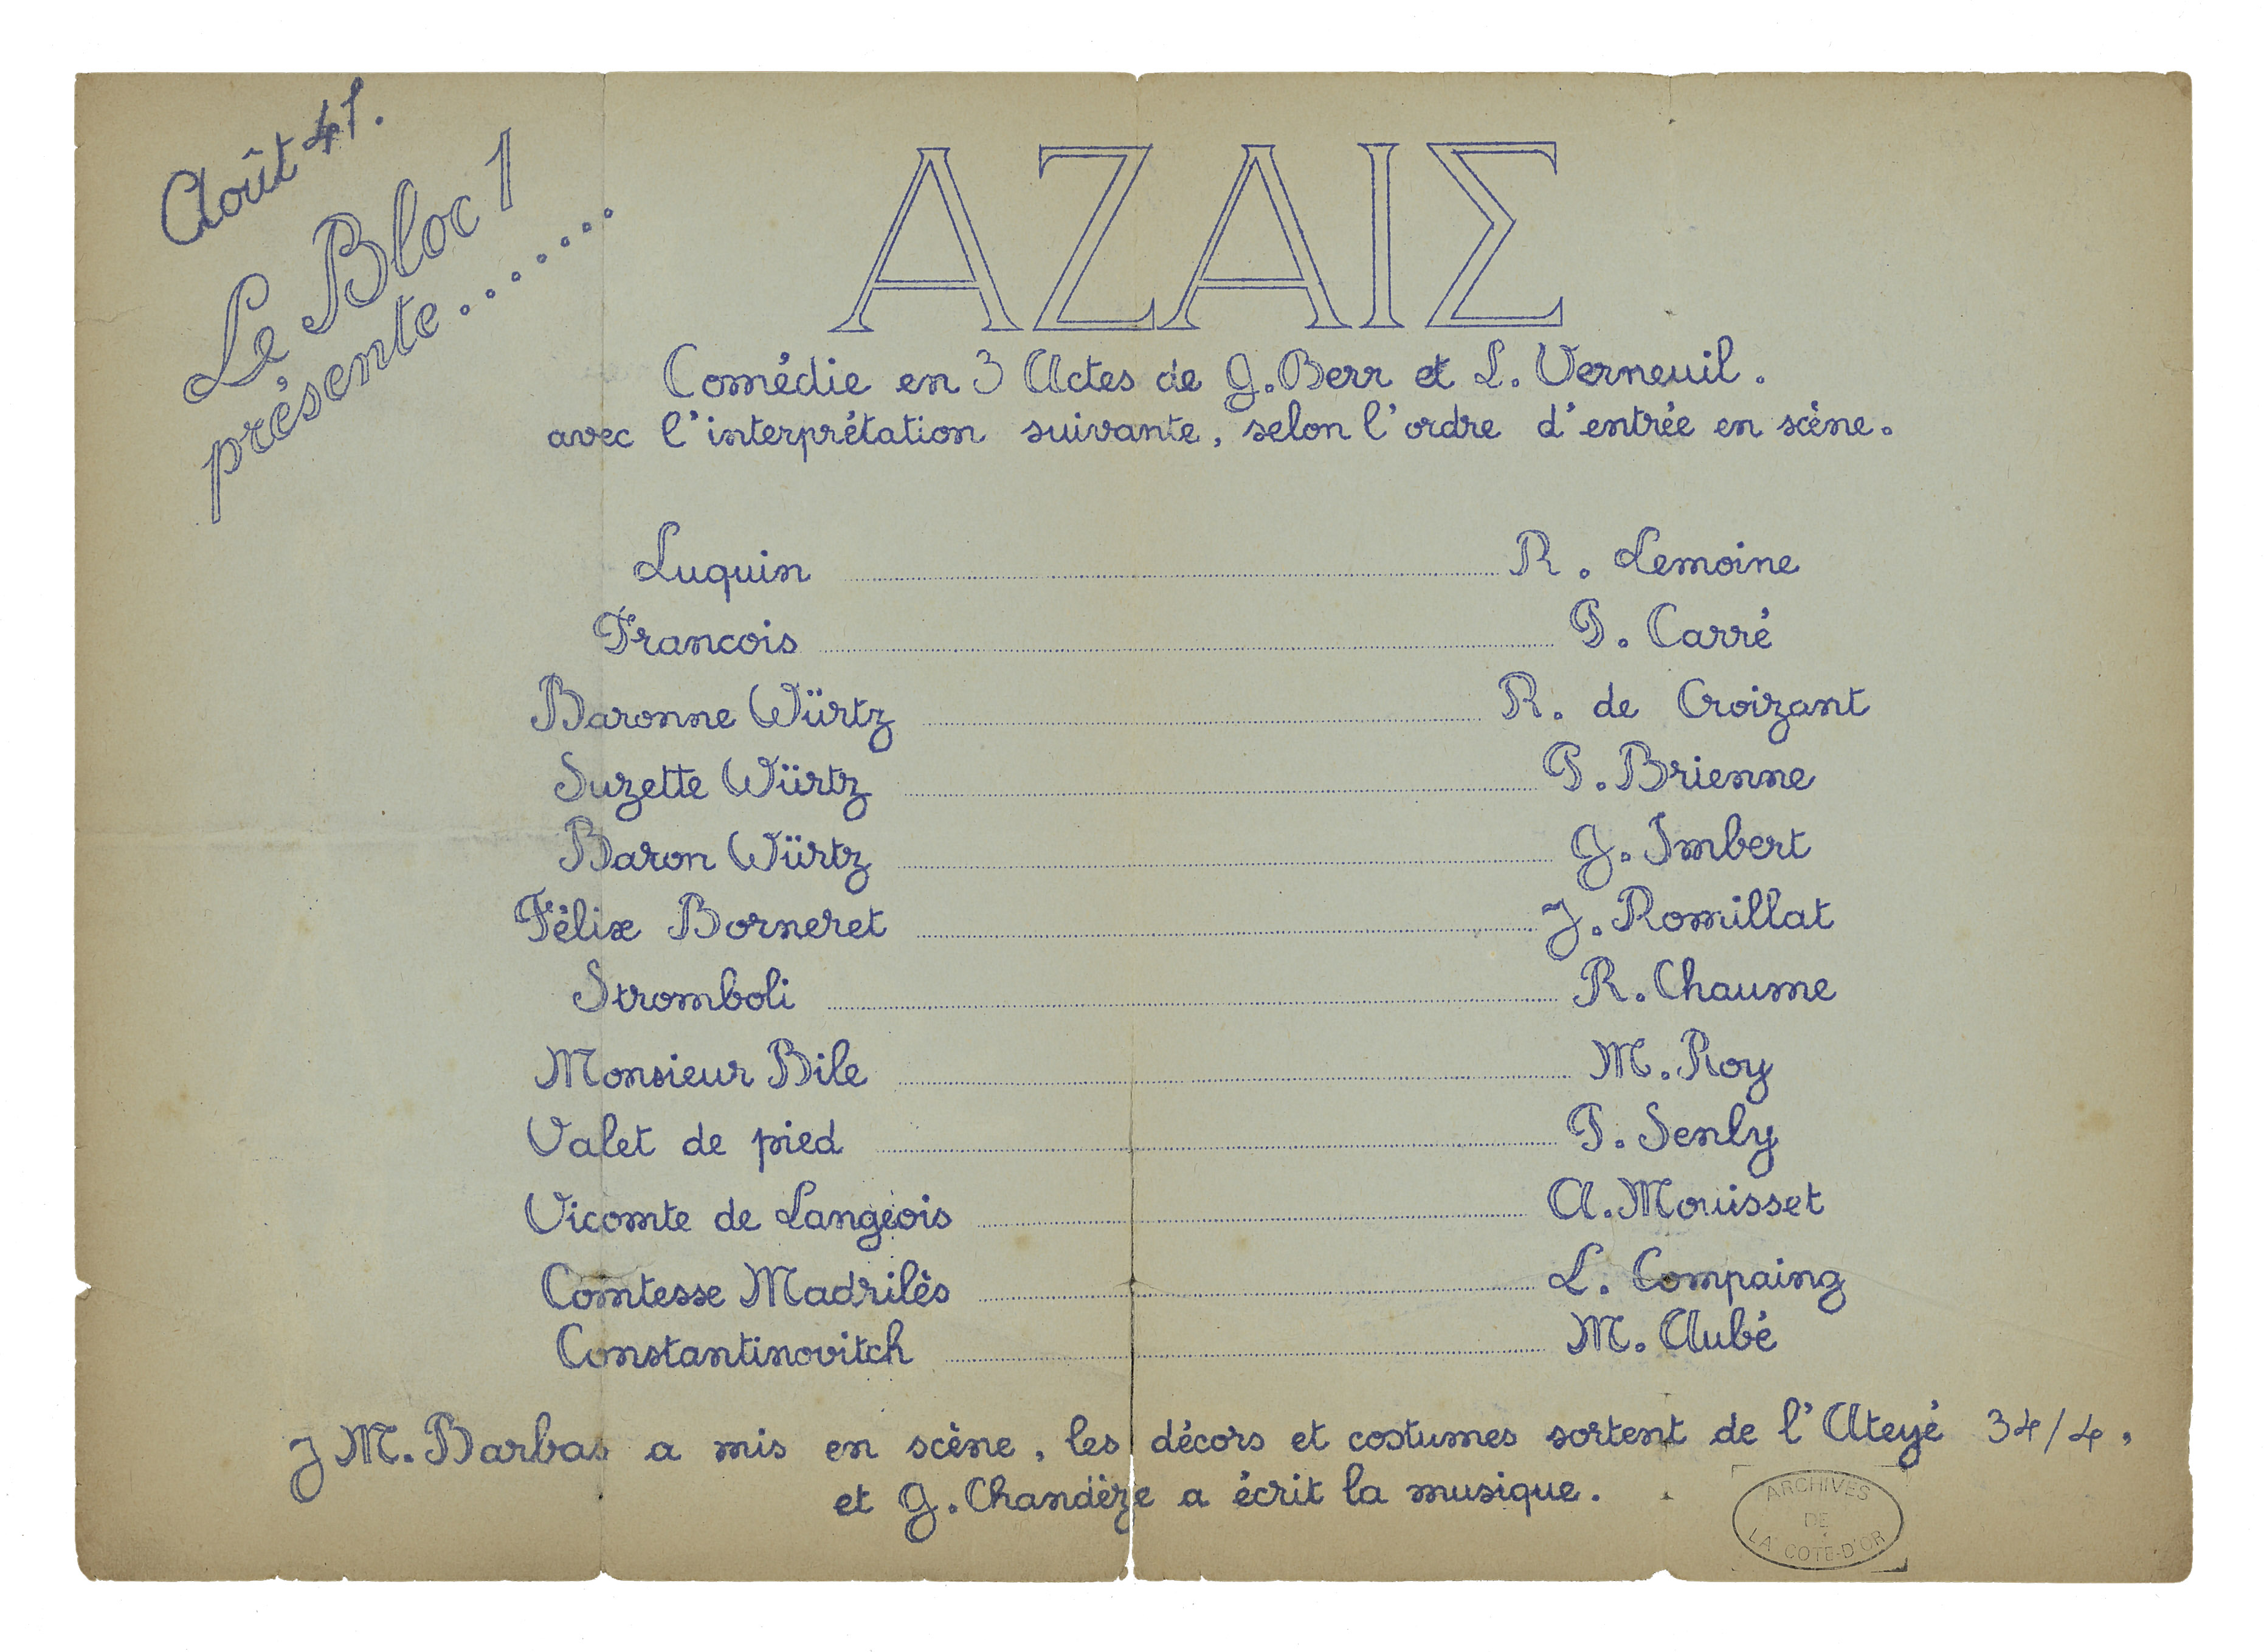 Août 41.
Le Bloc 1
présente.......
ΑΖΑΙΣ
Comédie en 3 Actes de G. Berr et L. Verneuil.
avec l'interprétation suivante, selon l'ordre d'entrée en scène.
Luquin ........ R. Lemoine
Francois ........ P. Carré
Baronne Würtz ........ R. de Croizant
Suzette Würtz ........ P. Brienne
Baron Würtz ........ G. Imbert
Félix Borneret ........ J. Romillat
Stromboli ........ R. Chaume
Monsieur Bile ........ M. Roy
Valet de pied ........ P. Senly
Vicomte de Langeois ........ A. Mouisset
Comtesse Madrilès ........ L. Compaing
Constantinovitch ........ M. Aubé
J M. Barbas a mis en scène, les décors et costumes sortent de l'Ateyé 34/4,
et G. Chandèze a écrit la musique.
ARCHIVES
DE
LA COTE-D'OR